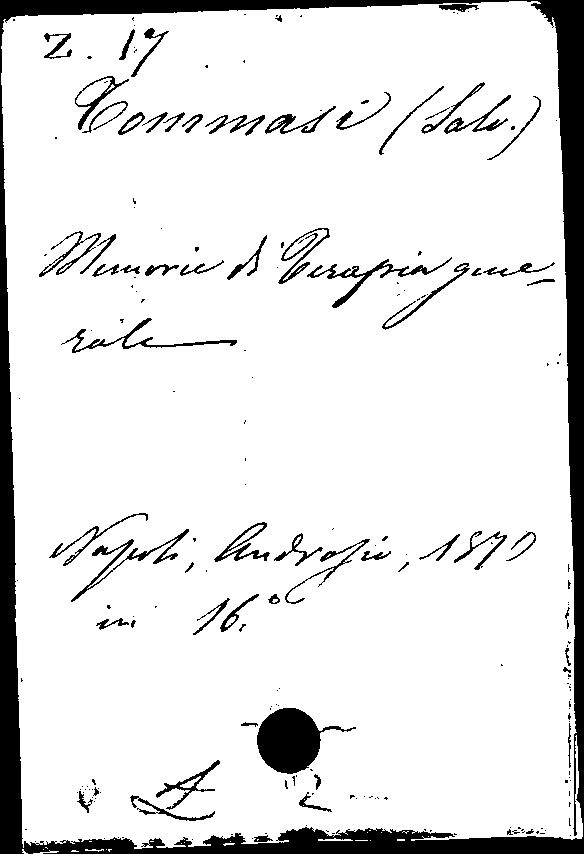 Z. 17
Tommasi (Salv.)
Memorie di Terapia gene-
rale
Napoli, Androsio, 1870
in 16.°
L 2